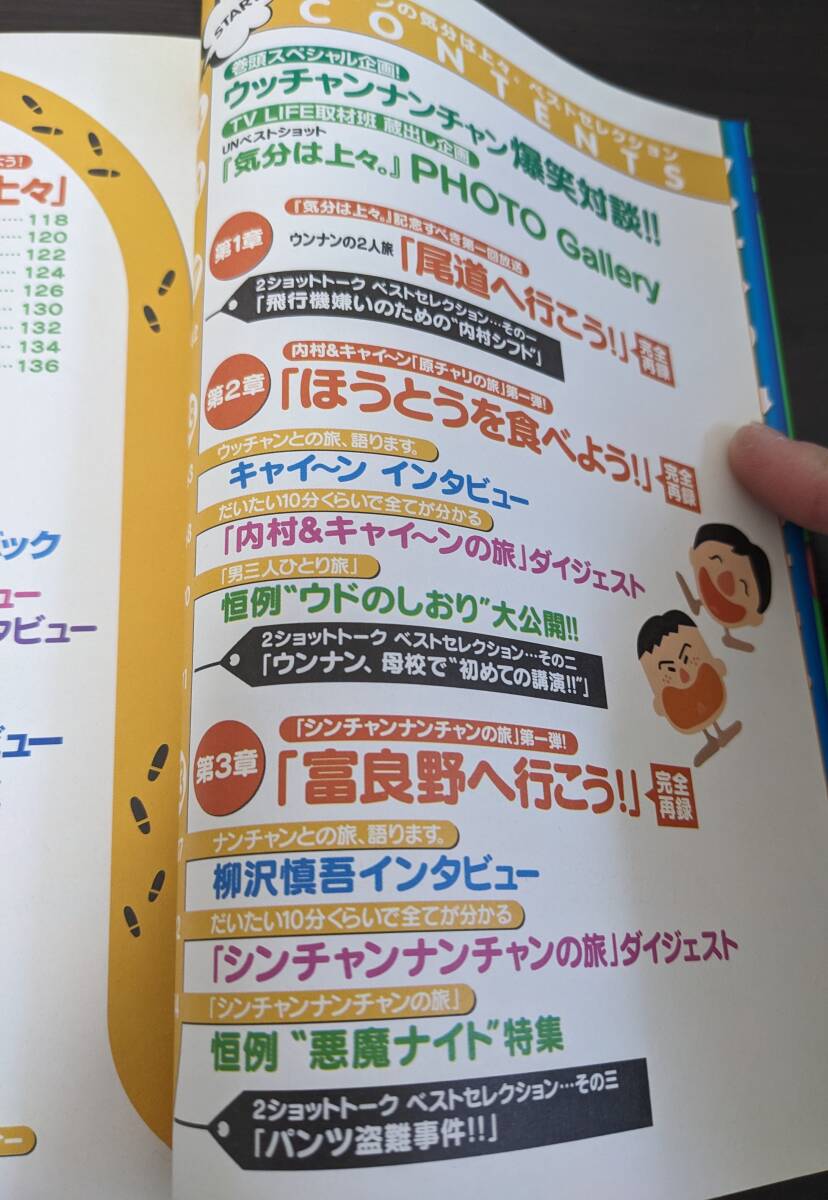 上々」
118
120
122
124
126
130
132
134
136
START
の気分は上々。ベストセレクション
CONTENTS
巻頭スペシャル企画!
ウッチャンナンチャン爆笑対談!!
TV LIFE取材班 蔵出し企画
UNベストショット
『気分は上々。』PHOTO Gallery
『気分は上々。』記念すべき第一回放送
第1章
ウンナンの2人旅
「尾道へ行こう!」
完全再録
2ショットトーク ベストセレクション…その一
「飛行機嫌いのための"内村シフト"」
内村&キャイ〜ン「原チャリの旅」第一弾!
第2章
「ほうとうを食べよう!」
完全再録
ウッチャンとの旅、語ります。
キャイ〜ン インタビュー
だいたい10分くらいで全てが分かる
「内村&キャイ〜ンの旅」ダイジェスト
「男三人ひとり旅」
恒例"ウドのしおり"大公開!!
2ショットトーク ベストセレクション…その二
「ウンナン、母校で"初めての講演!!"」
「シンチャンナンチャンの旅」第一弾!
第3章
「富良野へ行こう!」
完全再録
ナンチャンとの旅、語ります。
柳沢慎吾インタビュー
だいたい10分くらいで全てが分かる
「シンチャンナンチャンの旅」ダイジェスト
「シンチャンナンチャンの旅」
恒例 "悪魔ナイト"特集
2ショットトーク ベストセレクション…その三
「パンツ盗難事件!!」